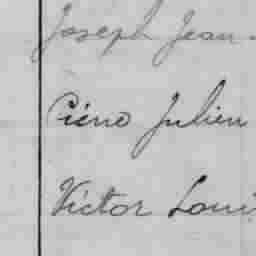 Joseph Jean
Piéno Julien
Victor Loui